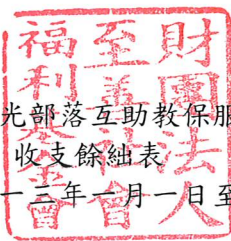 財團法人
至善社會
福利基金會
光部落互助教保服
收支餘絀表
一三年一月一日至